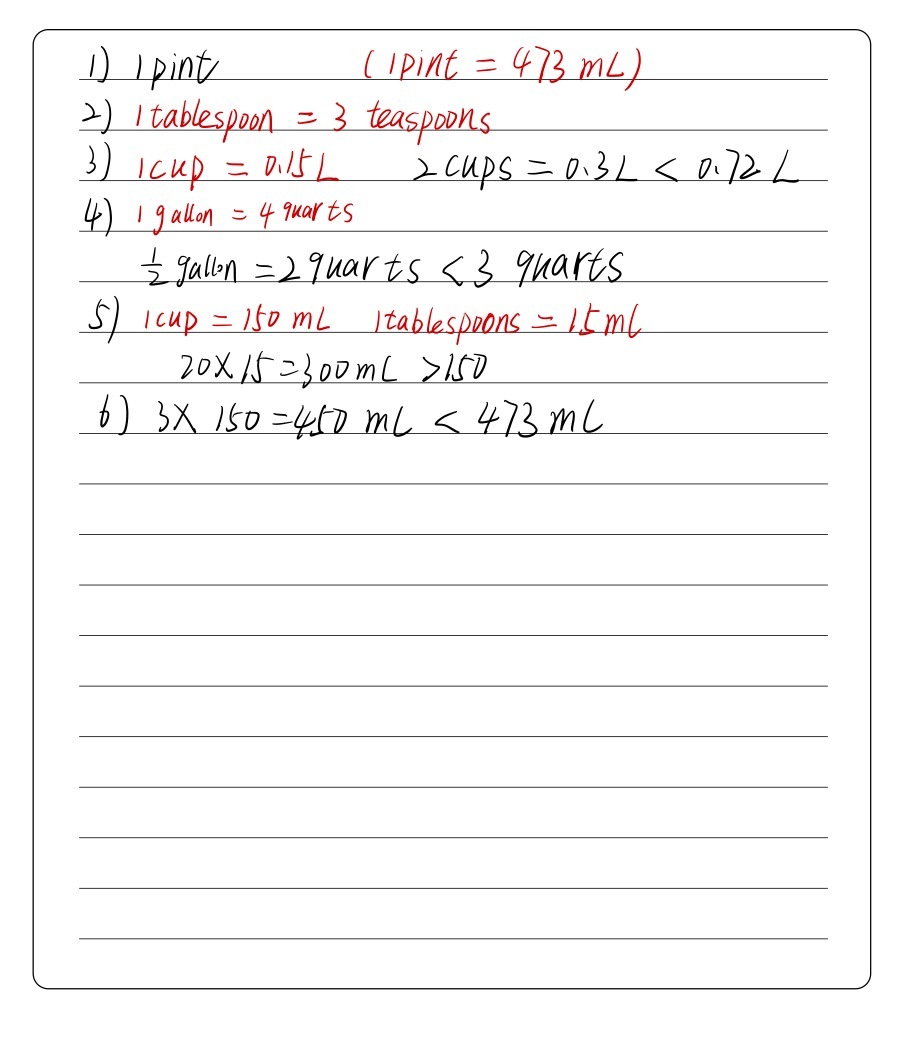 1) 1 pint (1 pint = 473 mL)
2) 1 tablespoon = 3 teaspoons
3) 1 cup = 0.15 L 2 cups = 0.3 L < 0.72 L
4) 1 gallon = 4 quarts
1/2 gallon = 2 quarts < 3 quarts
5) 1 cup = 150 mL 1 tablespoons = 15 mL
20 × 15 = 300 mL > 150
6) 3 × 150 = 450 mL < 473 mL